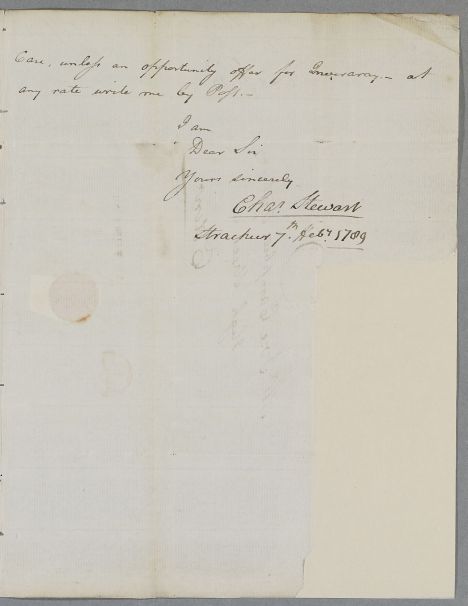 Care, unless an opportunity offer for Inveraray – at
any rate write me by Post. –
I am
Dear Sir
Yours sincerely
Chas. Stewart
Strachur 7th Febry 1789